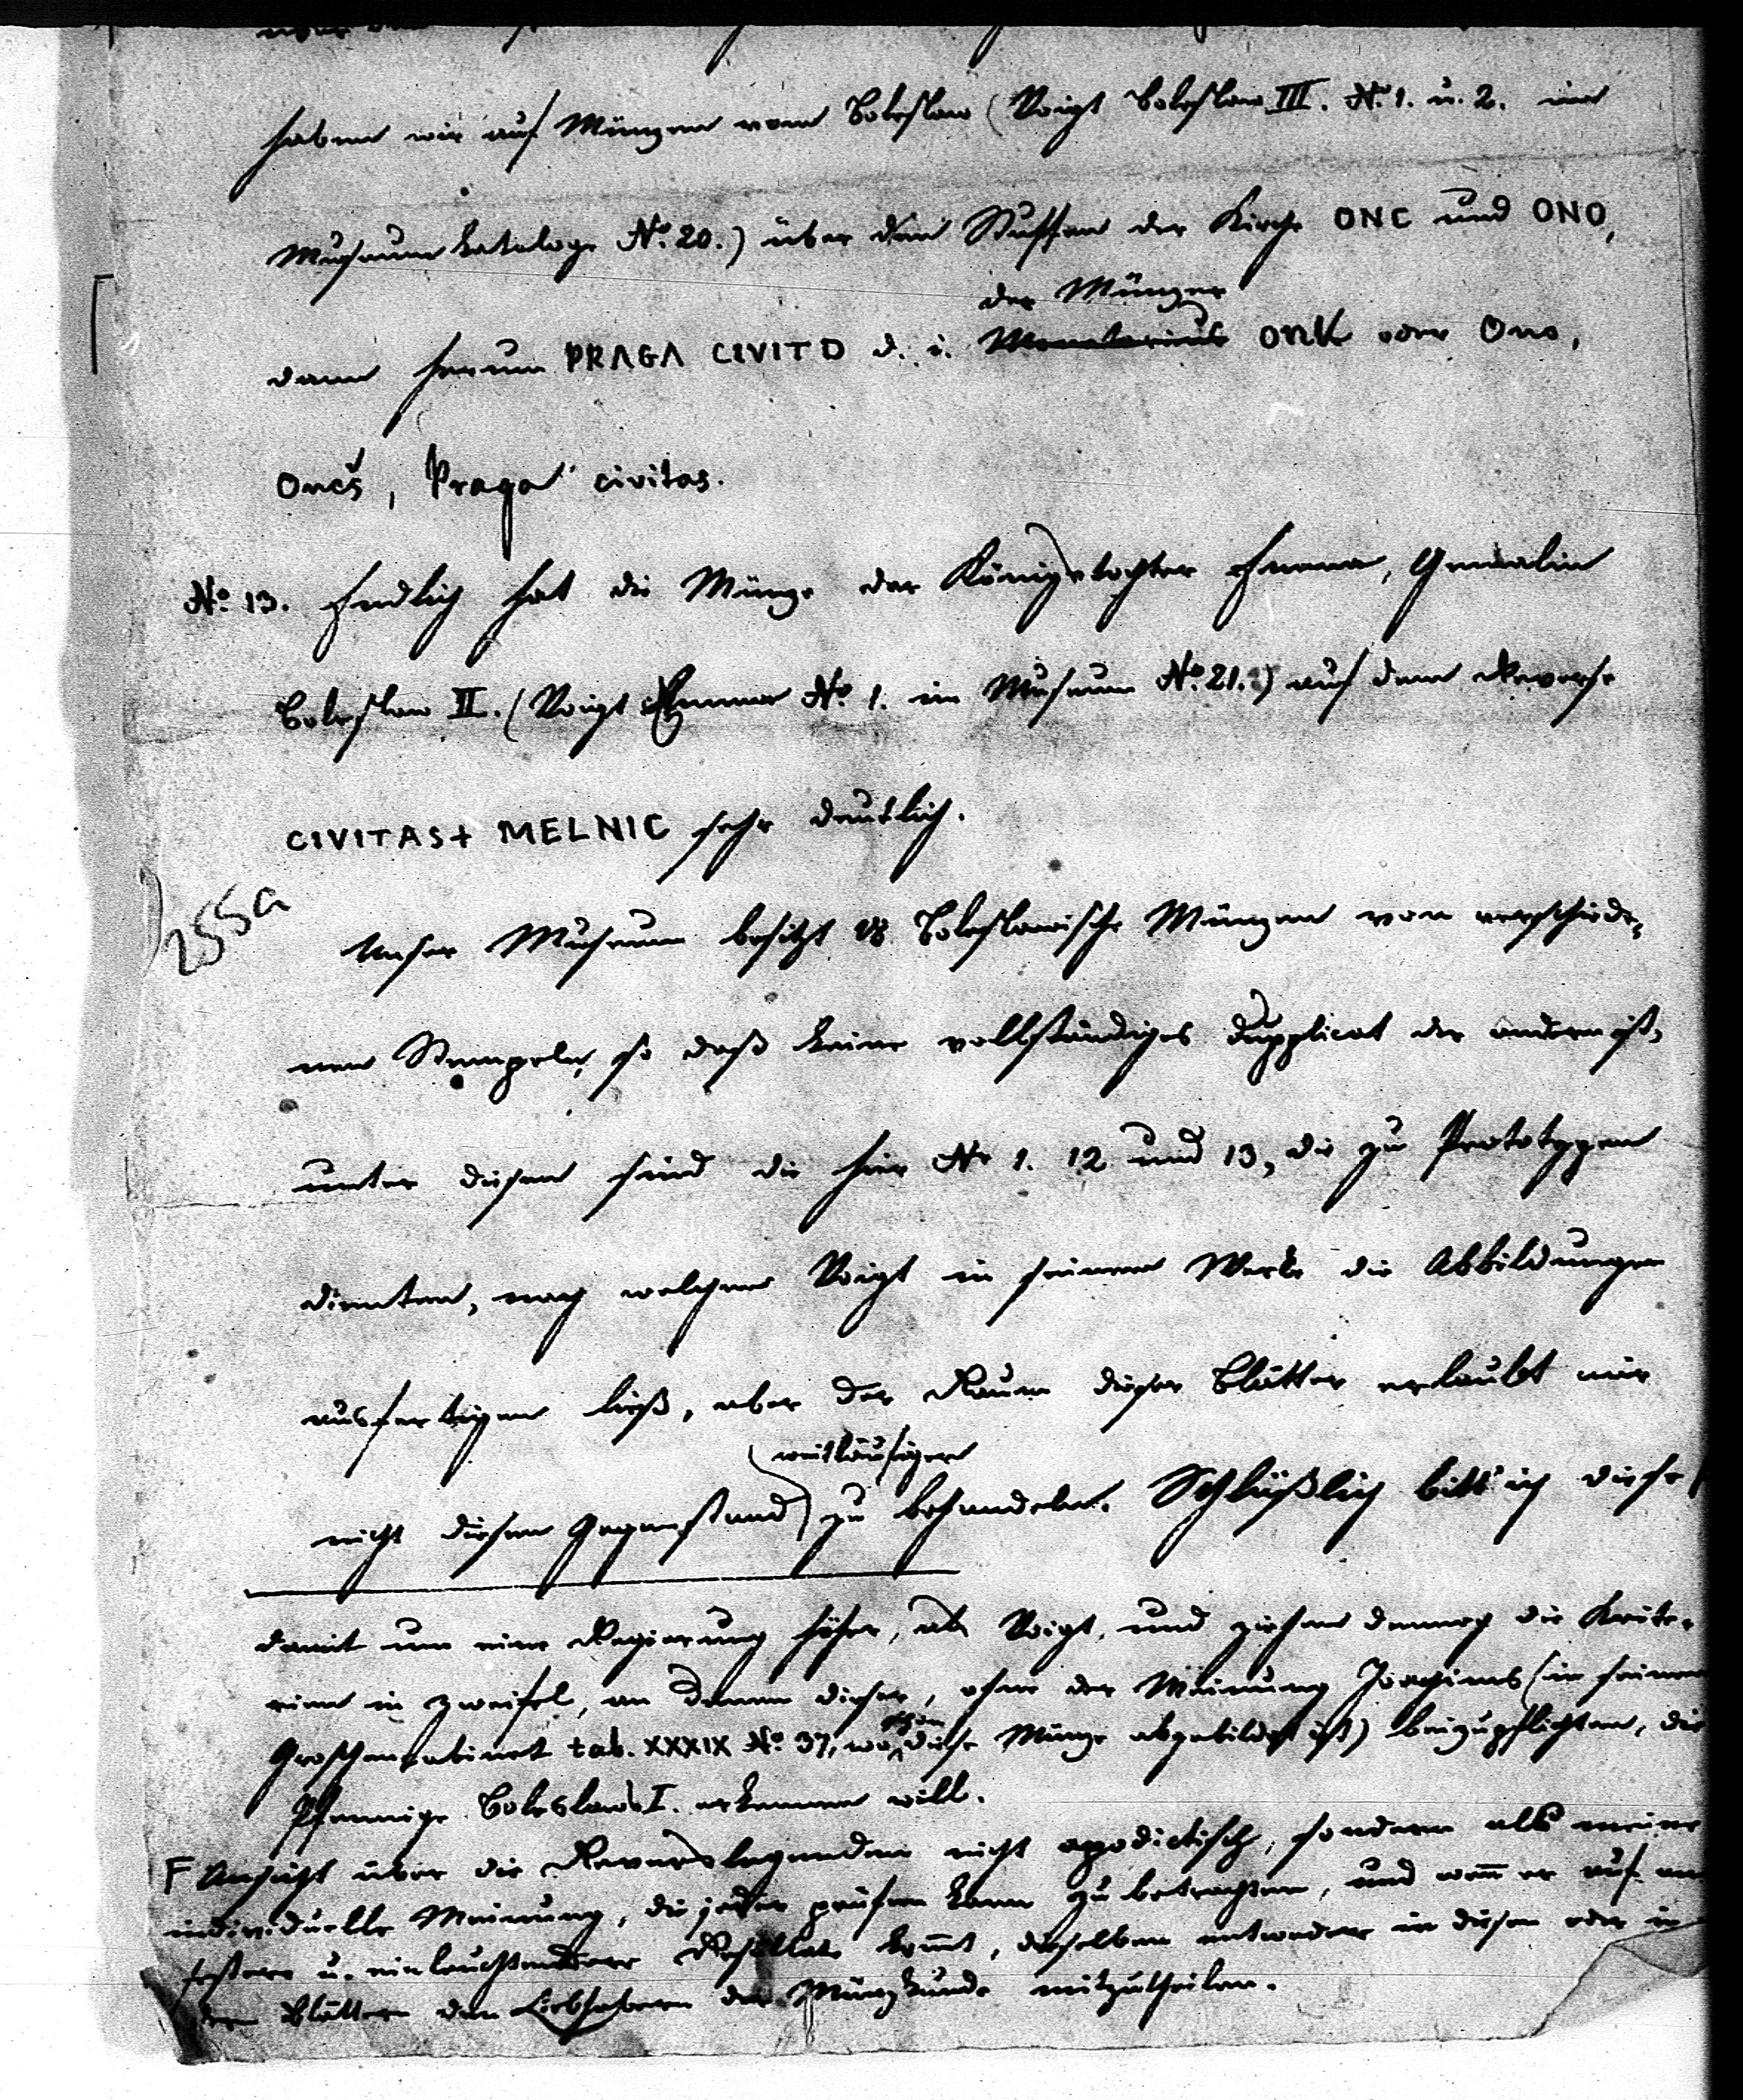 haben wir auf Münzen vom Boleslaw (Voigt Boleslaw III. No. 1. u. 2. im
Museumskataloge No. 20.) über den Stuffen der Kirche ONC und ONO,
der Münzer
dann herum PRAGA CIVITO d. i. Monetarius ONK oder Ono,
Oneš, Praga civitas.
No. 13. Endlich hat die Münze der Königstochter Emma, Gemalin
Boleslaw II. (Voigt Emma No. 1. im Museum No. 21.) auf dem Reverse
CIVITAS+ MELNIC sehr deutlich.
255a
Unser Museum besitzt Boleslawische Münzen von verschiede-
nen Stempeln, so daß keine vollständiges Dupplicat der andern ist,
unter diesen sind die hier No 1. 12 und 13, die zu Prototypen
dienten, nach welchen Voigt in seinem Werke die Abbildungen
ausfertigen ließ, aber der Raum dieser Blätter erlaubt mir
weitläufiger
nicht diesen Gegenstand zu behandeln. Schlüßlich bitt ich diese
damit um eine Regierung höher, als Voigt, und ziehen demnach die Krite-
rien in Zweifel, an denen dieser, ohne der Meinung Joachims (in seinem
schon
Groschencabinet tab. XXXIX No. 37, wo diese Münze abgebildet ist) beizupflichten, die
Pfennige Boleslaws I. erkennen will.
F Ansicht über die Reverslegenden nicht apodictisch, sondern als meine
individuelle Meinung, die jeder prüfen kann zu betrachten, und wenn er auf
festere u. einleuchtendere Resultate kommt, dieselben entweder in diesen oder in
Blättern den Liebhabern der Münzkunde mitzutheilen.